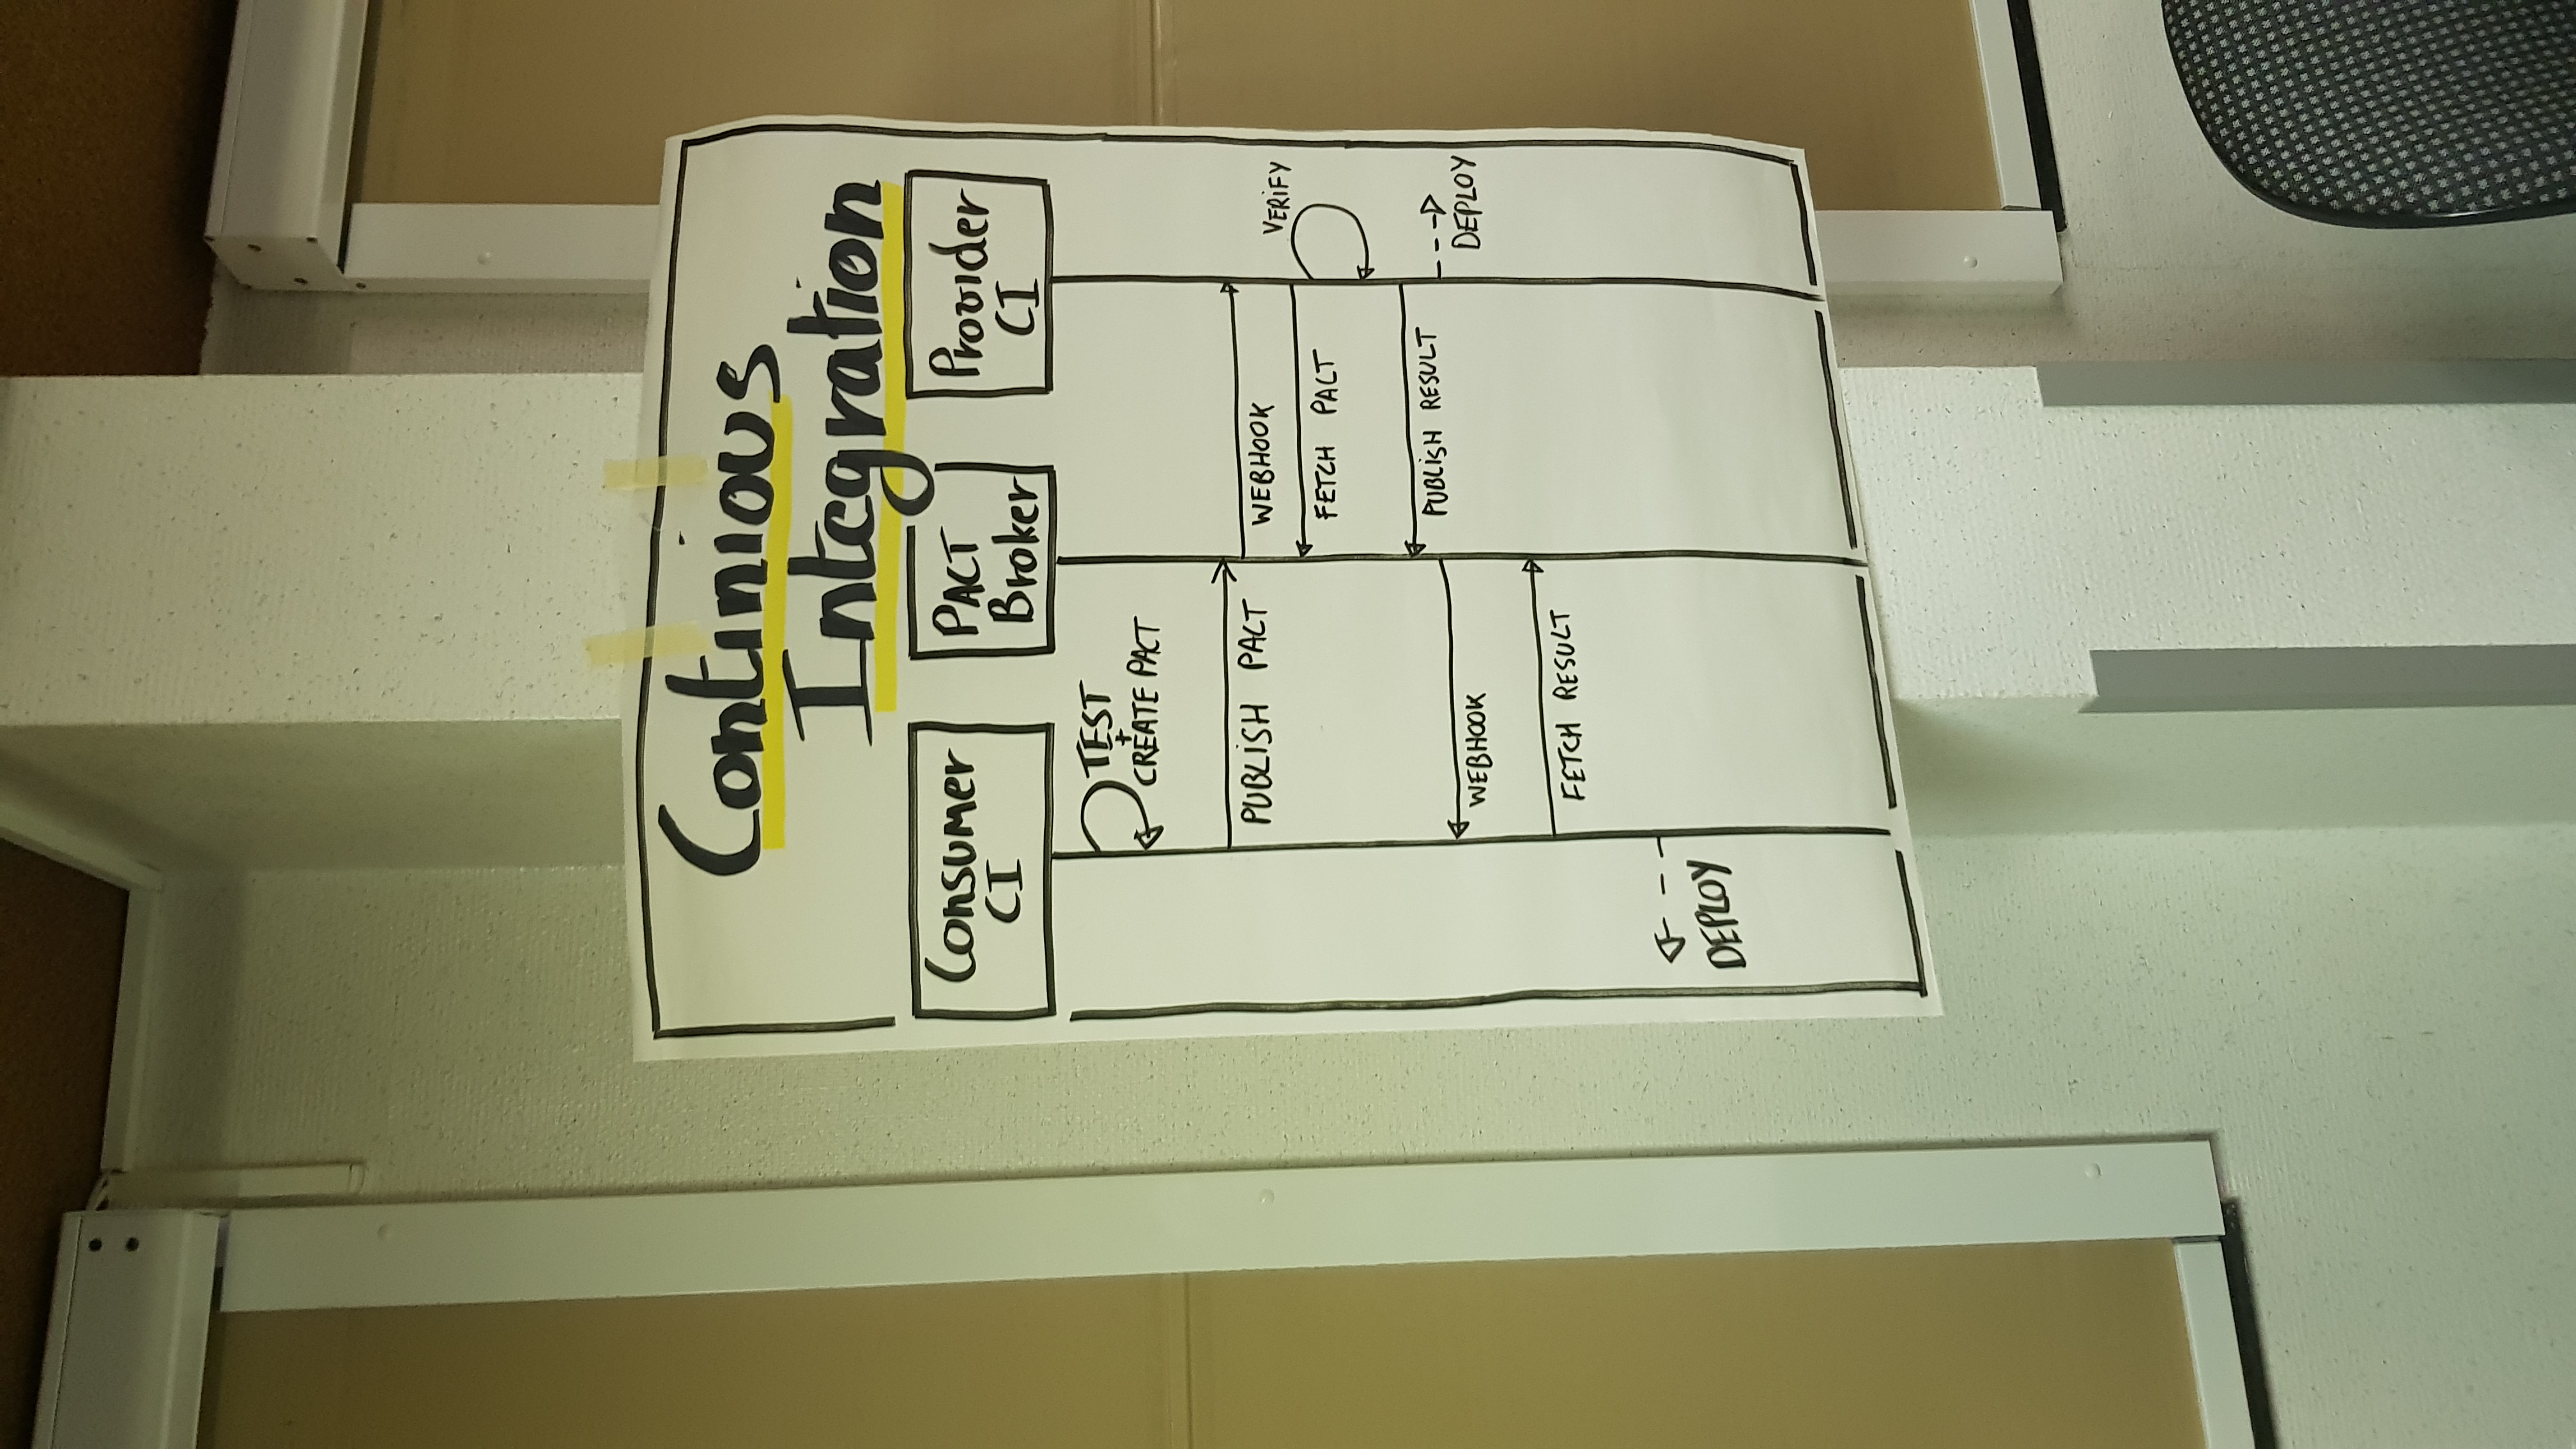 Continious
Integration
Consumer
CI
PACT
Broker
Provider
CI
TEST
+
CREATE PACT
PUBLISH PACT
WEBHOOK
VERIFY
FETCH PACT
PUBLISH RESULT
DEPLOY
WEBHOOK
FETCH RESULT
DEPLOY